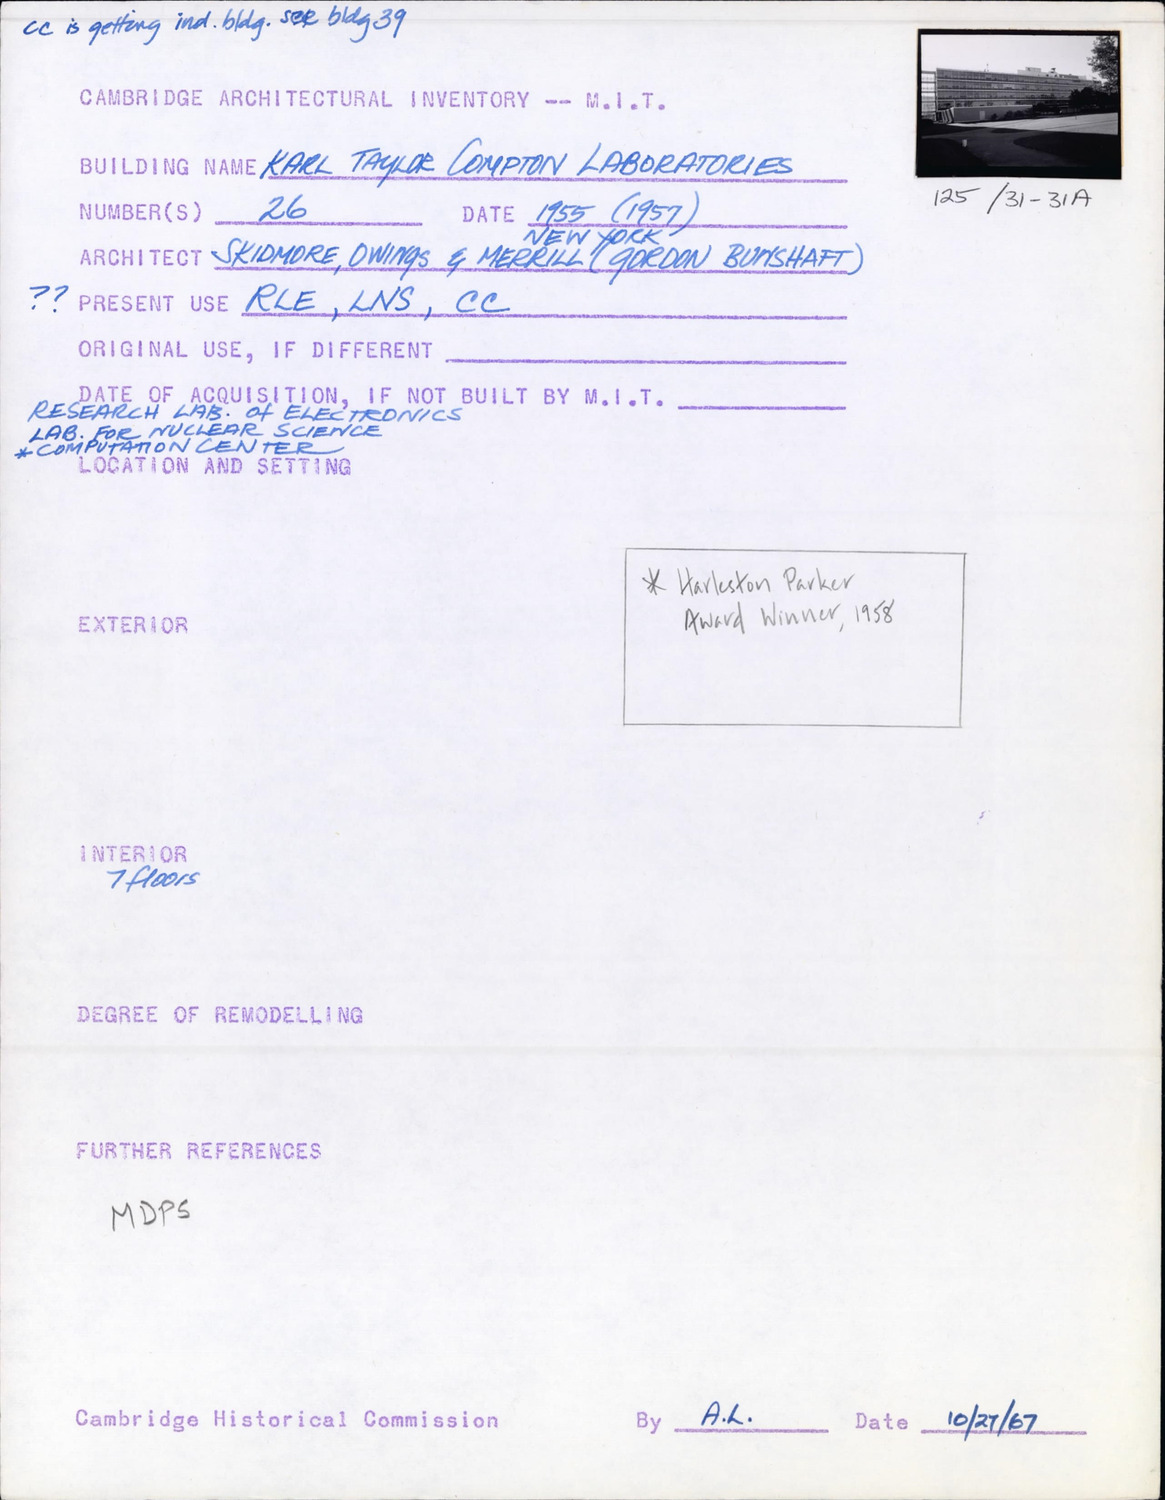 cc is getting ind. bldg. see bldg 39
CAMBRIDGE ARCHITECTURAL INVENTORY -- M.I.T.
BUILDING NAME KARL TAYLOR COMPTON LABORATORIES
125 /31-31A
NUMBER(S) 26 DATE 1955 (1957)
NEW YORK
ARCHITECT SKIDMORE, OWINGS & MERRILL (GORDON BUNSHAFT)
?? PRESENT USE RLE, LNS, CC
ORIGINAL USE, IF DIFFERENT
DATE OF ACQUISITION, IF NOT BUILT BY M.I.T.
RESEARCH LAB. Of ELECTRONICS
LAB. FOR NUCLEAR SCIENCE
* COMPUTATION CENTER
LOCATION AND SETTING
* Harleston Parker
Award Winner, 1958
EXTERIOR
INTERIOR
7 floors
DEGREE OF REMODELLING
FURTHER REFERENCES
MDPS
Cambridge Historical Commission By A.L. Date 10/27/67